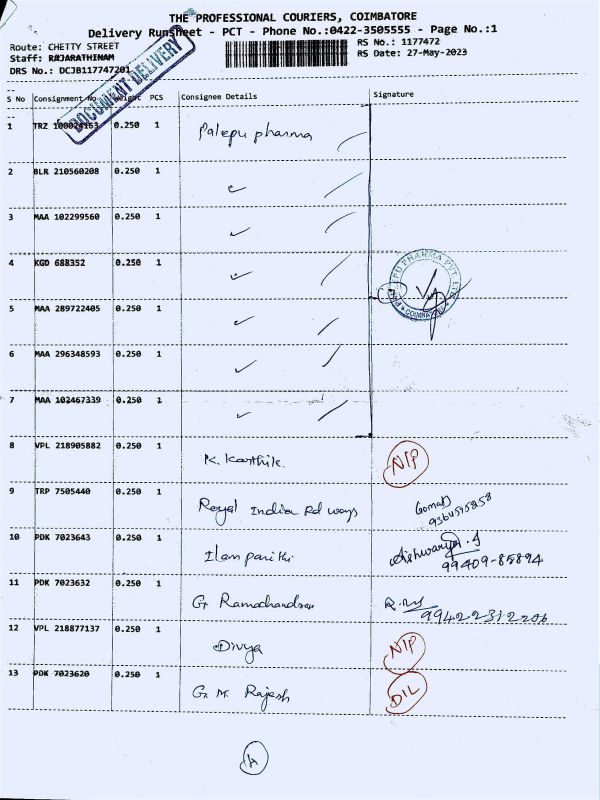 THE PROFESSIONAL COURIERS, COIMBATORE
Delivery Runsheet - PCT - Phone No.:0422-3505555 - Page No.:1
Route: CHETTY STREET
RS No.: 1177472
Staff: RAJARATHINAM
RS Date: 27-May-2023
DRS No.: DCJB117747201
DOCUMENT DELIVERY
S No Consignment No. Weight PCS Consignee Details Signature
1 TRZ 100024163 0.250 1 Palepu pharma
2 BLR 210560208 0.250 1
3 MAA 102299560 0.250 1
4 KGD 688352 0.250 1
PHARMA PVT. LTD
5 MAA 289722405 0.250 1
6 MAA 296348593 0.250 1
7 MAA 102467339 0.250 1
8 VPL 218905882 0.250 1 K. Karthik. N/P
9 TRP 7505440 0.250 1 Royal India Rd ways
10 PDK 7023643 0.250 1 Ilam parithi Aishwarya .J
99409-85894
11 PDK 7023632 0.250 1 G. Ramachandran
12 VPL 218877137 0.250 1 Divya N/P
13 PDK 7023620 0.250 1 G. M. Rajesh D/L